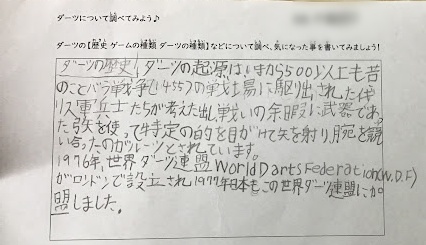 ダーツについて調べてみよう♪
ダーツの【歴史 ゲームの種類 ダーツの種類】などについて調べ、気になった事を書いてみましょう!
ダーツの歴史 ダーツの起源はいまから500年以上も昔
のことバラ戦争(1455)の戦場に駆り出されたイギ
リス軍兵士たちが考え出した戦いの余暇に武器であっ
た矢を使って特定の的を目がけて矢を射り、腕を競
い合ったのがルーツとされています。
1976年、世界ダーツ連盟World Darts Federation(W.D.F)
がロンドンで設立され1977年日本もこの世界ダーツ連盟に加
盟しました。